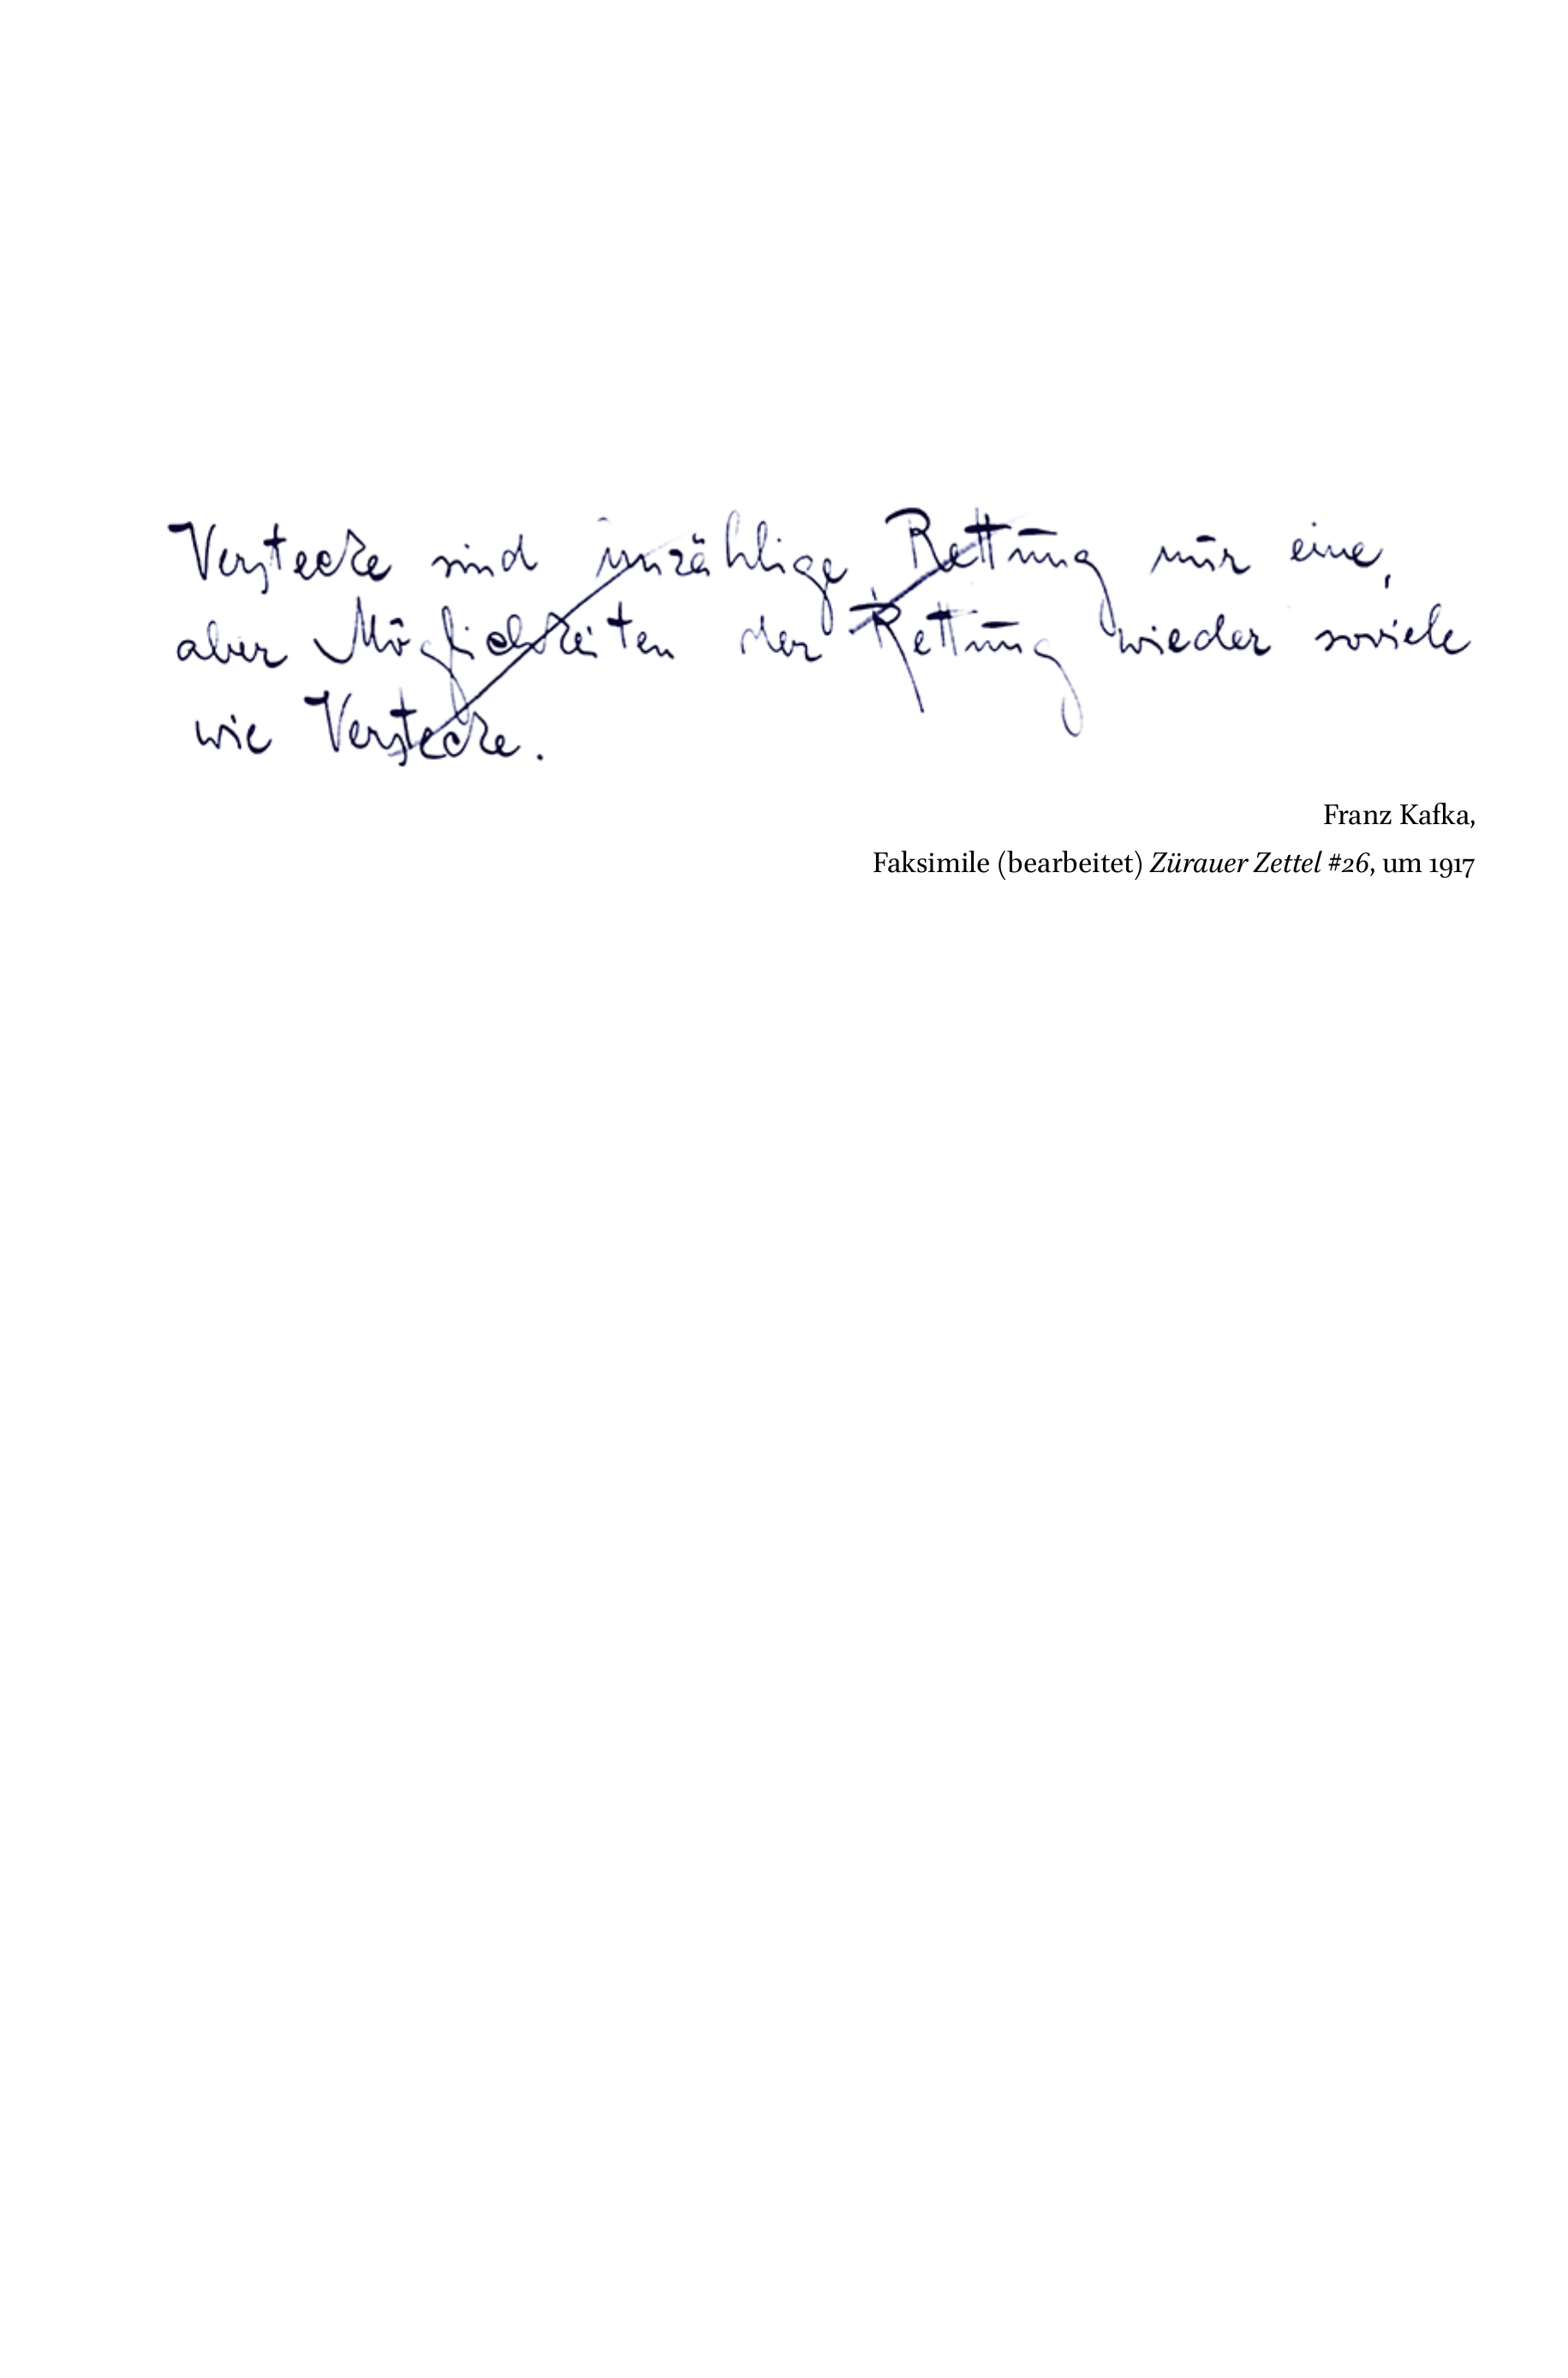 Verstecke sind unzählige, Rettung nur eine,
aber Möglichkeiten der Rettung wieder soviele
wie Verstecke.
Franz Kafka,
Faksimile (bearbeitet) Zürauer Zettel #26, um 1917